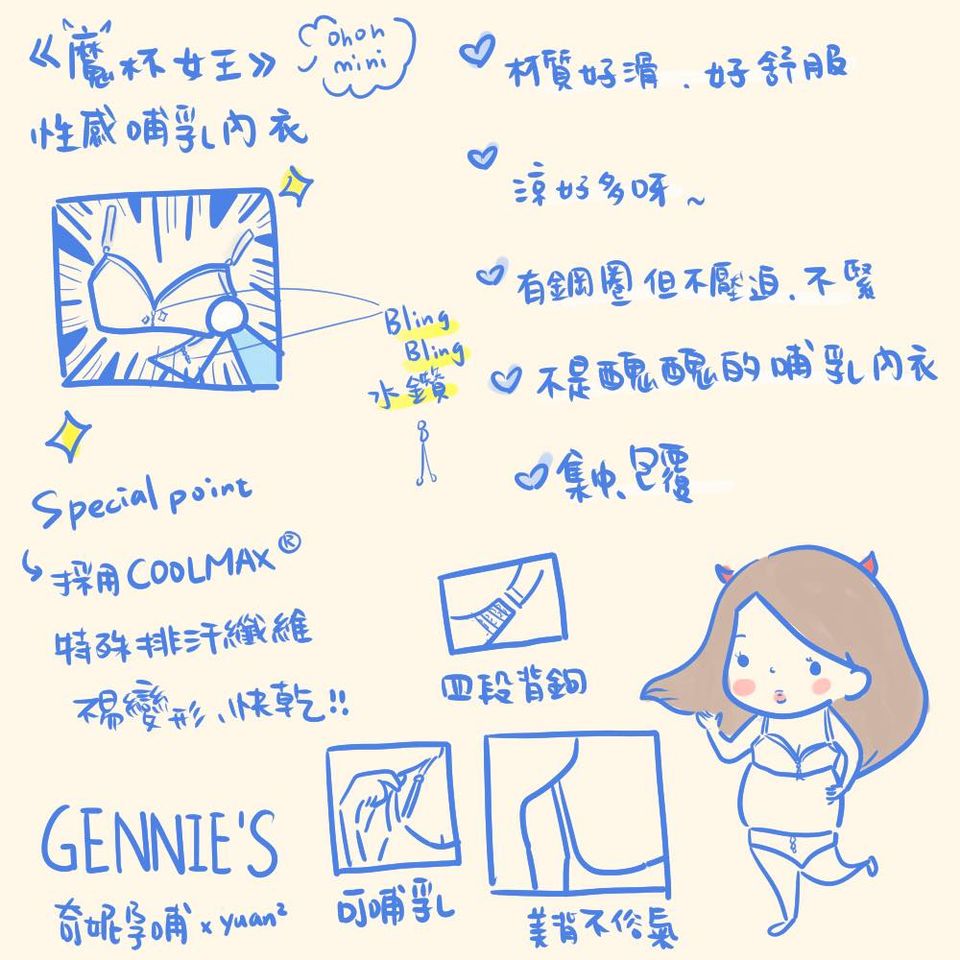 《魔杯女王》
ohoh
mini
性感哺乳內衣
材質好滑、好舒服
涼好多呀~
有鋼圈但不壓迫、不緊
不是醜醜的哺乳內衣
集中、包覆
Bling
Bling
水鑽
Special point
採用COOLMAX®
特殊排汗纖維
不易變形、快乾!!
四段背鉤
可哺乳
美背不俗氣
GENNIE'S
奇妮孕哺 x yuan²